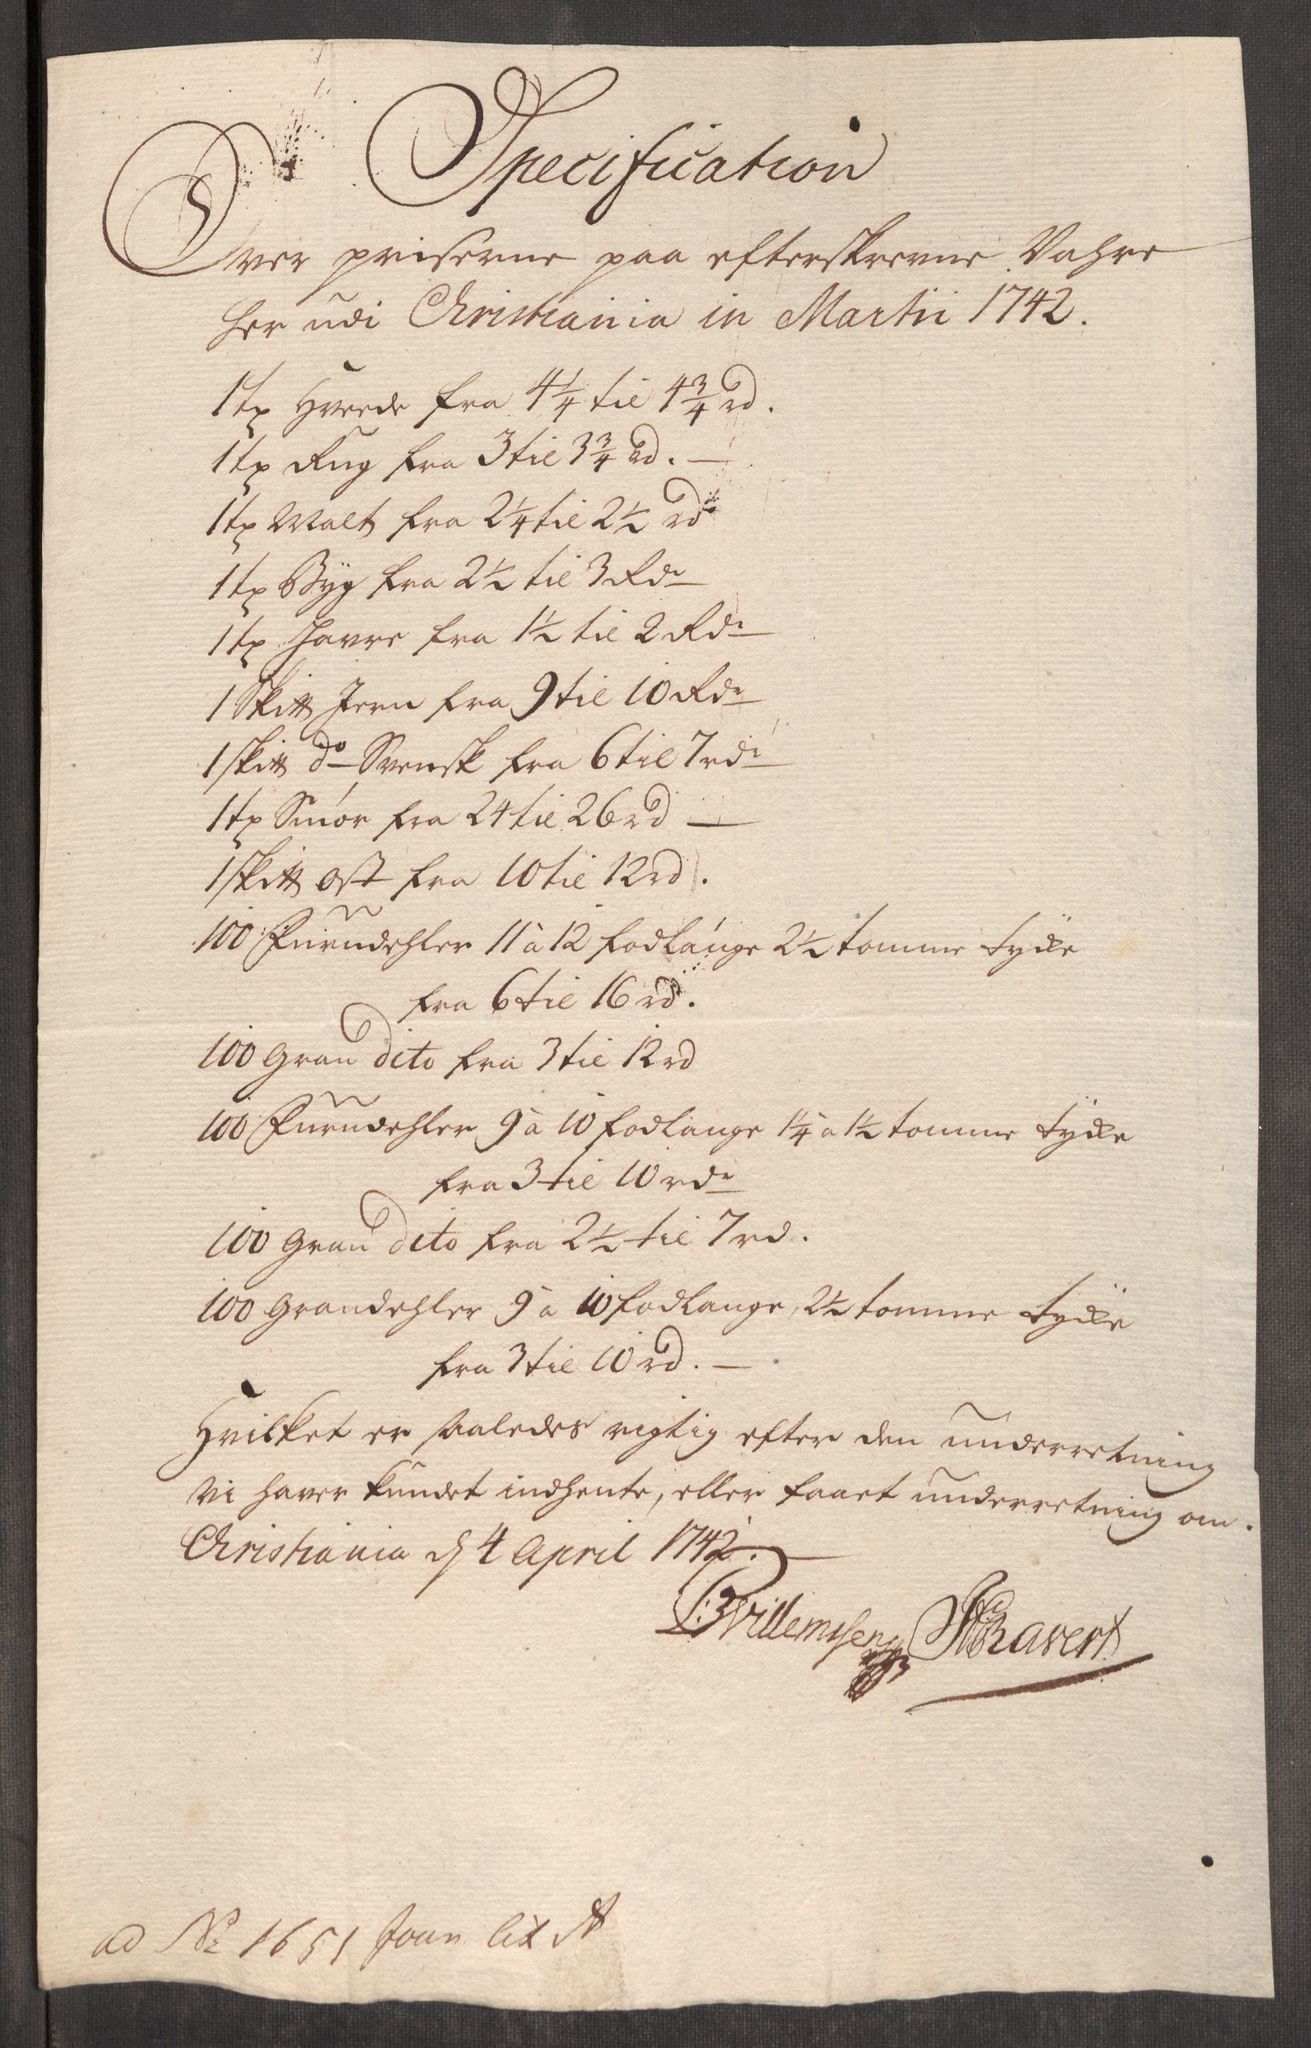 Specification
Over priserne paa efterskrevne Vahre
her udi Christiania in Martii 1742.
1 tp Hvede fra 4 1/4 til 4 3/4 rd.
1 tp Rug fra 3 til 3 3/4 rd. —
1 tp Malt fra 2 1/4 til 2 1/2 rd
1 tp Byg fra 2 1/2 til 3 Rdr
1 tp Havre fra 1 1/2 til 2 Rdr
1 Skitt Jern fra 9 til 10 Rdr
1 skitt do Svensk fra 6 til 7 rdr
1 tp Smör fra 24 til 26 rd —
1 skitt ost fra 10 til 12 rd.
100 Furudehler 11 a 12 fodlange 2 1/2 tomme tycke
fra 6 til 16 rd.
100 Gran dito fra 3 til 12 rd
100 Furudehler 9 a 10 fodlange 1 1/4 a 1 1/2 tomme tycke
fra 3 til 10 rdr
100 Gran dito fra 2 1/2 til 7 rd.
100 Grandehler 9 a 10 fodlange, 2 1/2 tomme tycke
fra 3 til 10 rd. —
Hvilket er saaledes rigtig efter den underretning
vi haver kundet indhente, eller faaet underretning om.
Christiania d 4 April 1742.
Willemsen Ravert
ad No 1651 Joun lit A